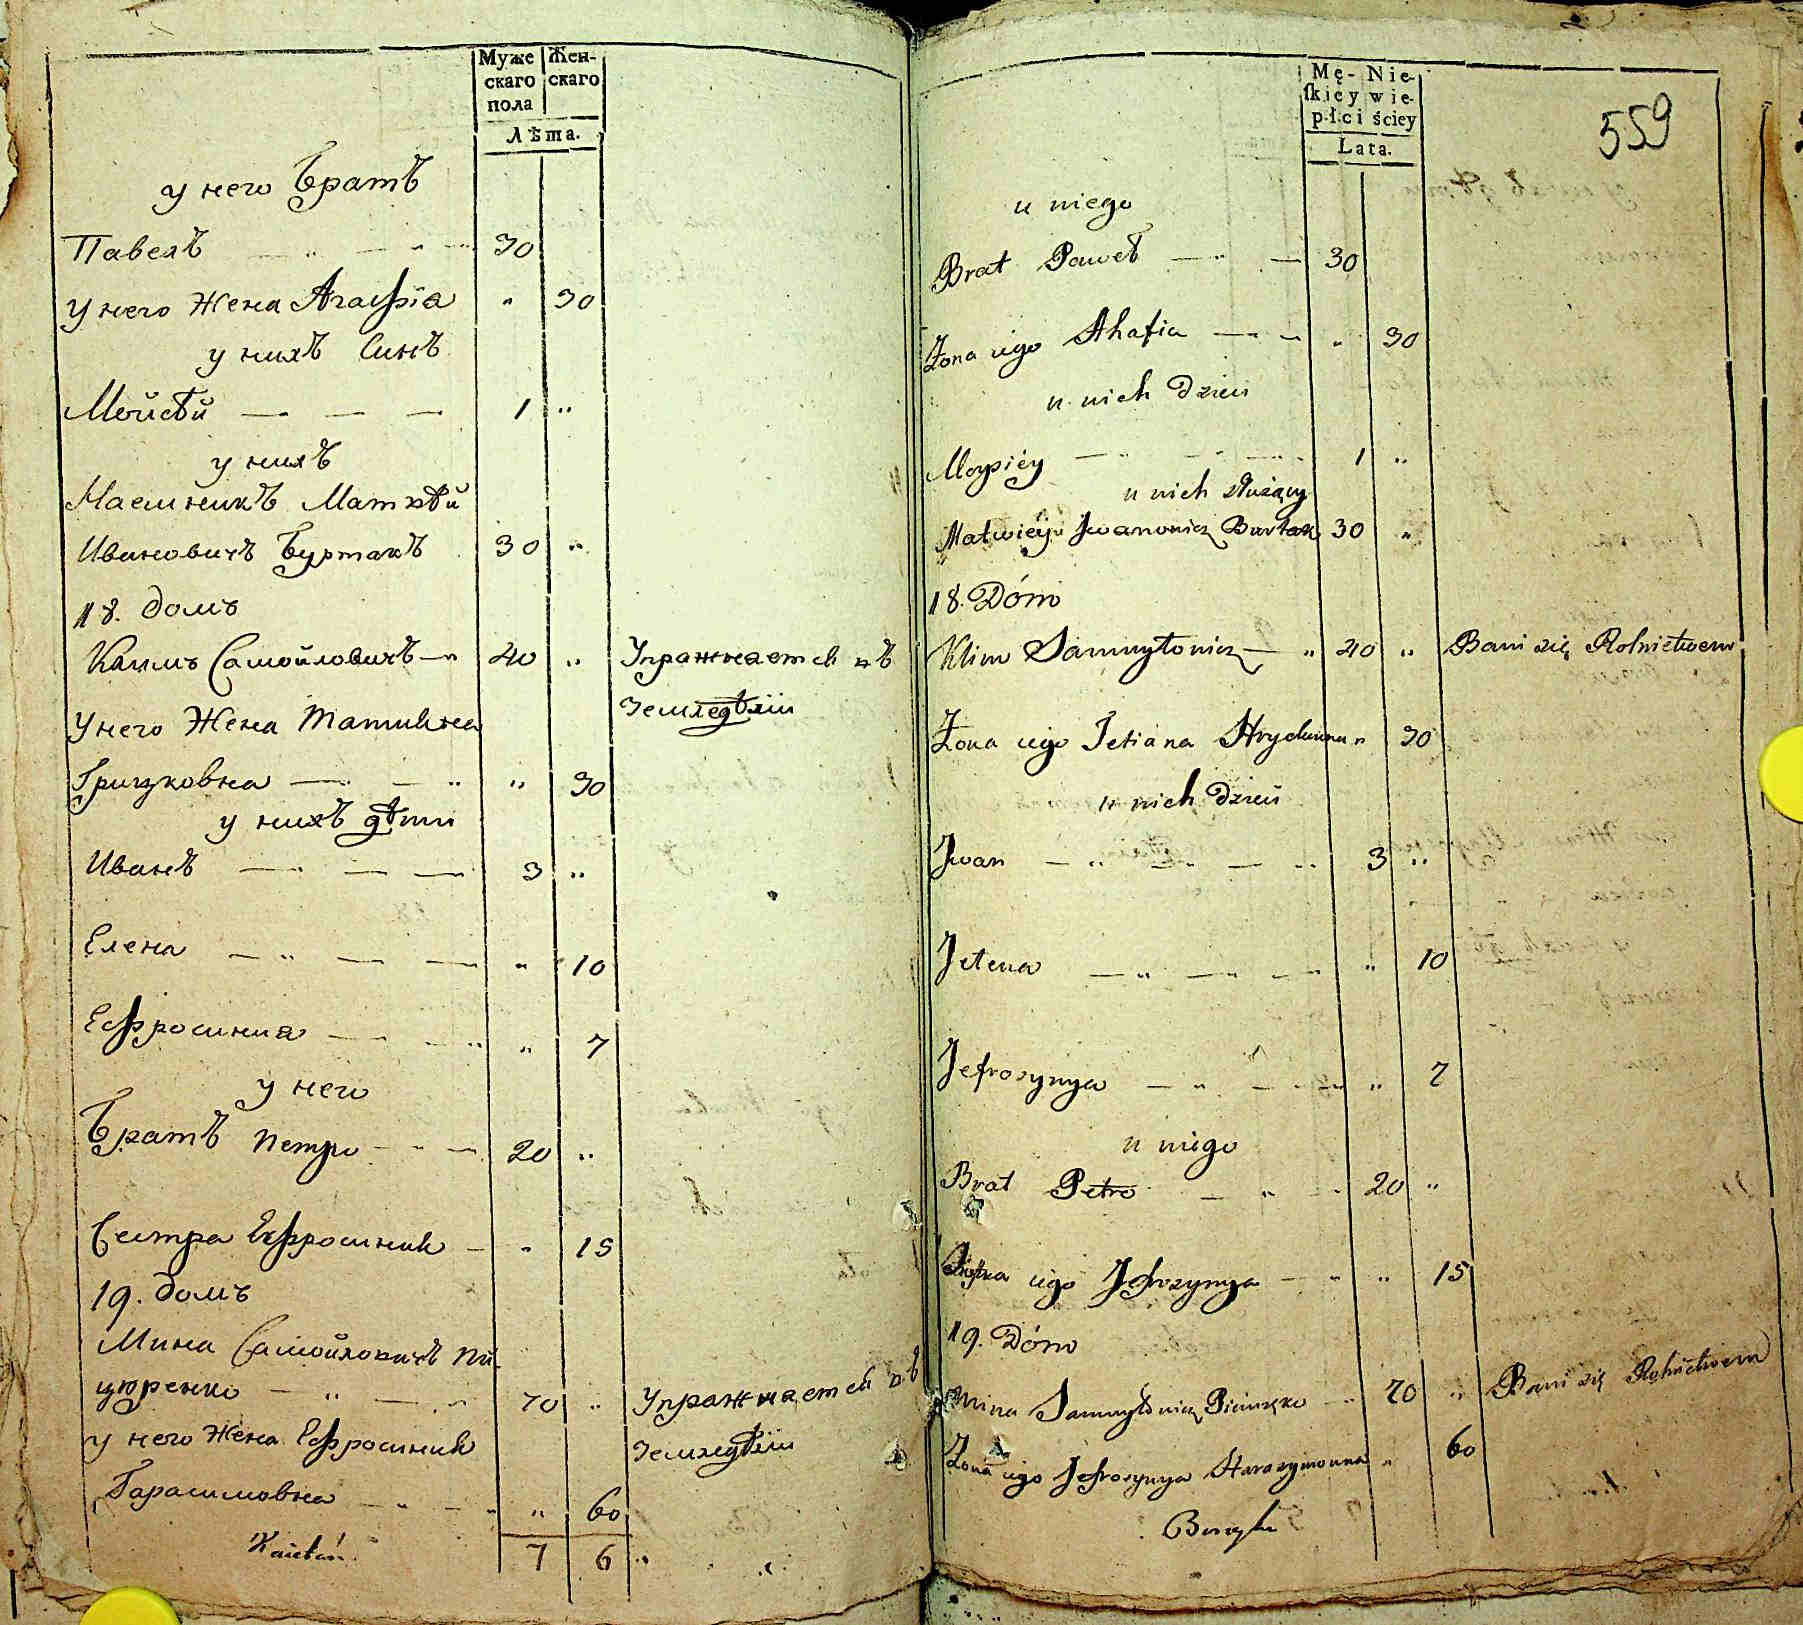 Муже Жен-
скаго скаго
пола
Лѣта.
у него Братъ
Павелъ 30
У него Жена Агафїа " 30
у нихъ Синъ
Мойсѣй 1 "
у нихъ
Наемникъ Матвѣй
Ивановичъ Буртакъ 30 "
18. Домъ
Климъ Самойловичъ 40 " Упражнается въ
Земледѣлїи
У него Жена Татиана
Грицковна " 30
у нихъ дѣти
Иванъ 3 "
Елена " 10
Ефросиния " 7
у него
Братъ Петро 20 "
Сестра Ефросиния " 15
19. Домъ
Мина Самойловичъ Пи-
цюренко 70 " Упражнается въ
у него Жена Ефросиния Земледѣлїи
Гарасимовна " 60
Kaietan 7 6 "
Mę- Nie-
ſkiey wie-
płci ściey
Lata.
559
u niego
Brat Paweł 30
Żona iego Ahafia " 30
u nich Dzieci
Moysiey 1 "
u nich służący
Matwiey Jwanowicz Burtak 30 "
18. Dóm
Klim Samuyłowicz 40 " Bawi się Rolnictwem
Żona iego Tetiana Hryckowna " 30
u nich Dzieci
Jwan 3 "
Jelena " 10
Jefrosynya " 7
u niego
Brat Petro 20 "
Siostra iego Jefrozynya " 15
19. Dóm
Mina Samuyłowicz 70 " Bawi się Rolnictwem
Żona iego Jefrosynya Harasymowna " 60